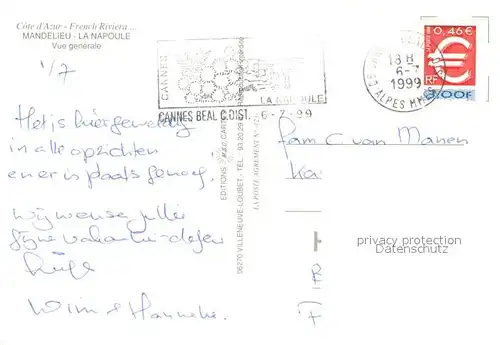 Côte d'Azur - French Riviera ...
MANDELIEU - LA NAPOULE
Vue générale
1/7
Het is hier geweldig
in alle opzichten
en er is plaats genoeg.
wij wensen jullie
fijne vakantie-dagen
Wim & Hanneke.
CANNES
LA NAPOULE
CANNES BEAL C.DIST. 6-7-99
EDITIONS
06270 VILLENEUVE-LOUBET - TÉL. 93.20.29
LA POSTE AGREMENT N°
18 H
6-7
1999
ALPES MMES
0,46 €
RF
3,00F
LA POSTE
fam C van Manen
privacy protection
Datenschutz